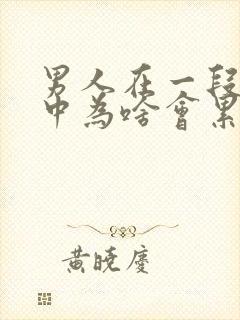 男人在一段
中为啥会累
黄晓庆